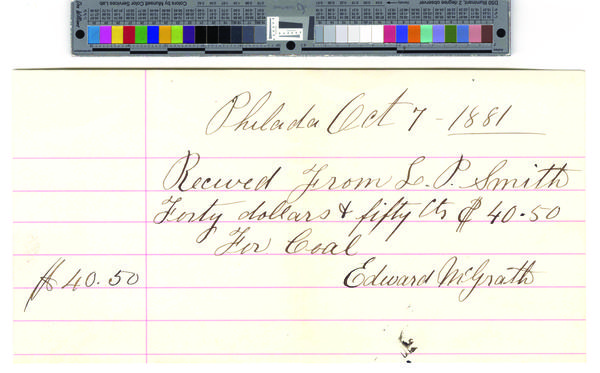 Philada Oct 7 - 1881
Recieved From L. P. Smith
Forty dollars & fifty Cts $ 40.50
For Coal
$ 40.50 Edward McGrath